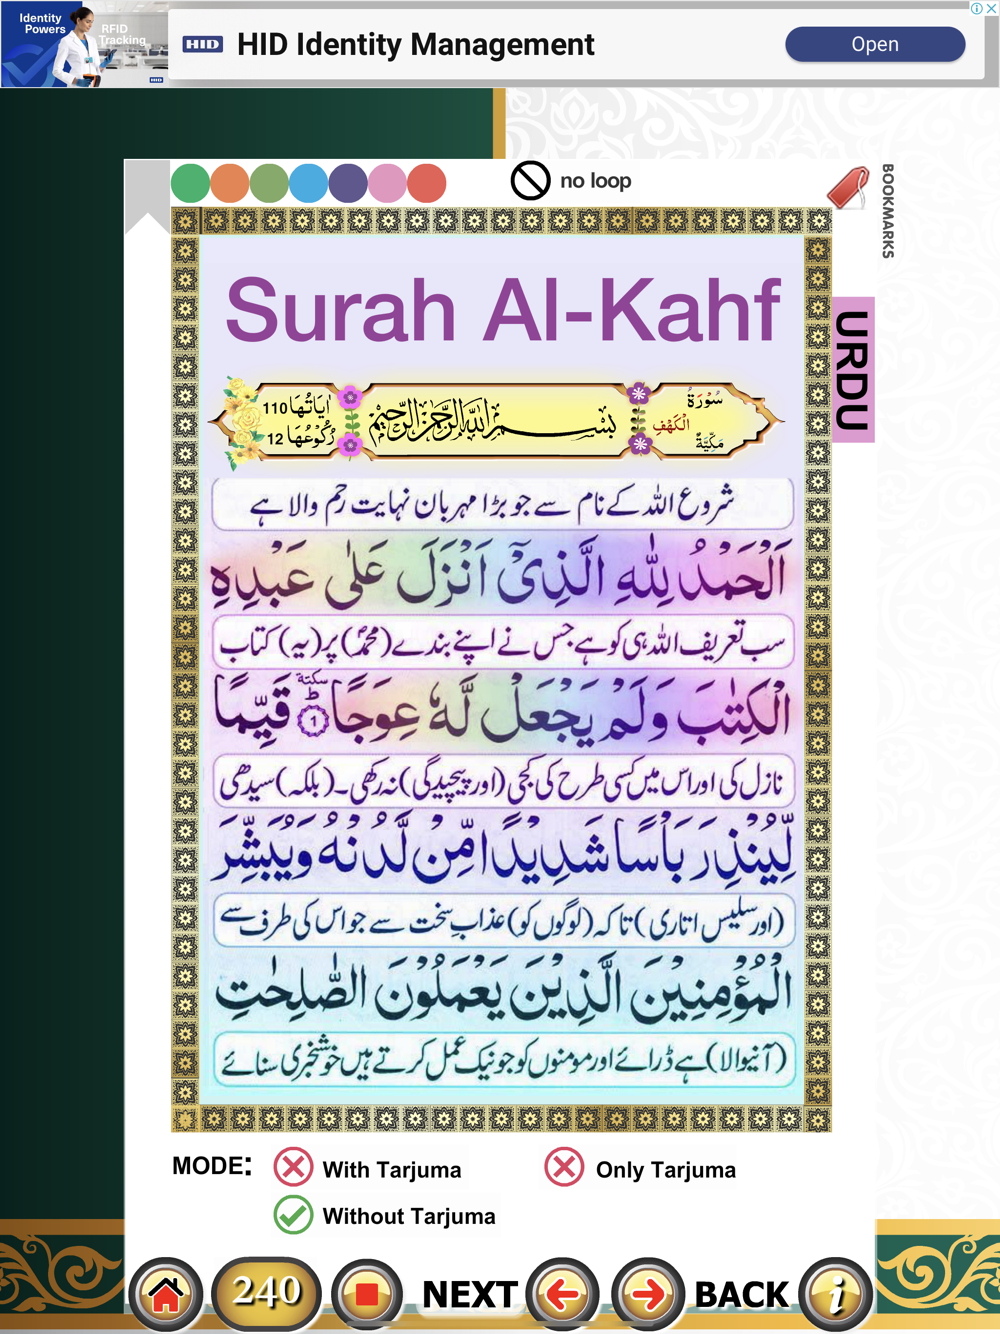 Identity
Powers
RFID
Tracking
HID
HID Identity Management
Open
no loop
BOOKMARKS
Surah Al-Kahf
URDU
سُوْرَةُ
الْكَهْفِ
مَكِّيَّةٌ
بِسْمِ اللهِ الرَّحْمٰنِ الرَّحِيْمِ
اٰيَاتُهَا 110
رُكُوْعُهَا 12
شروع اللہ کے نام سے جو بڑا مہربان نہایت رحم والا ہے
اَلْحَمْدُ لِلّٰهِ الَّذِيْٓ اَنْزَلَ عَلٰى عَبْدِهِ
سب تعریف اللہ ہی کو ہے جس نے اپنے بندے (محمدؐ) پر (یہ) کتاب
الْكِتٰبَ وَلَمْ يَجْعَلْ لَّهٗ عِوَجًا ؕ سكتة ۱ قَيِّمًا
نازل کی اور اس میں کسی طرح کی کجی (اور پیچیدگی) نہ رکھی۔ (بلکہ) سیدھی
لِّيُنْذِرَ بَاْسًا شَدِيْدًا مِّنْ لَّدُنْهُ وَيُبَشِّرَ
(اور سلیس اتاری) تاکہ (لوگوں کو) عذاب سخت سے جو اس کی طرف سے
الْمُؤْمِنِيْنَ الَّذِيْنَ يَعْمَلُوْنَ الصّٰلِحٰتِ
(آنیوالا) ہے ڈرائے اور مومنوں کو جو نیک عمل کرتے ہیں خوشخبری سنائے
MODE:
With Tarjuma
Only Tarjuma
Without Tarjuma
240
NEXT
BACK
i